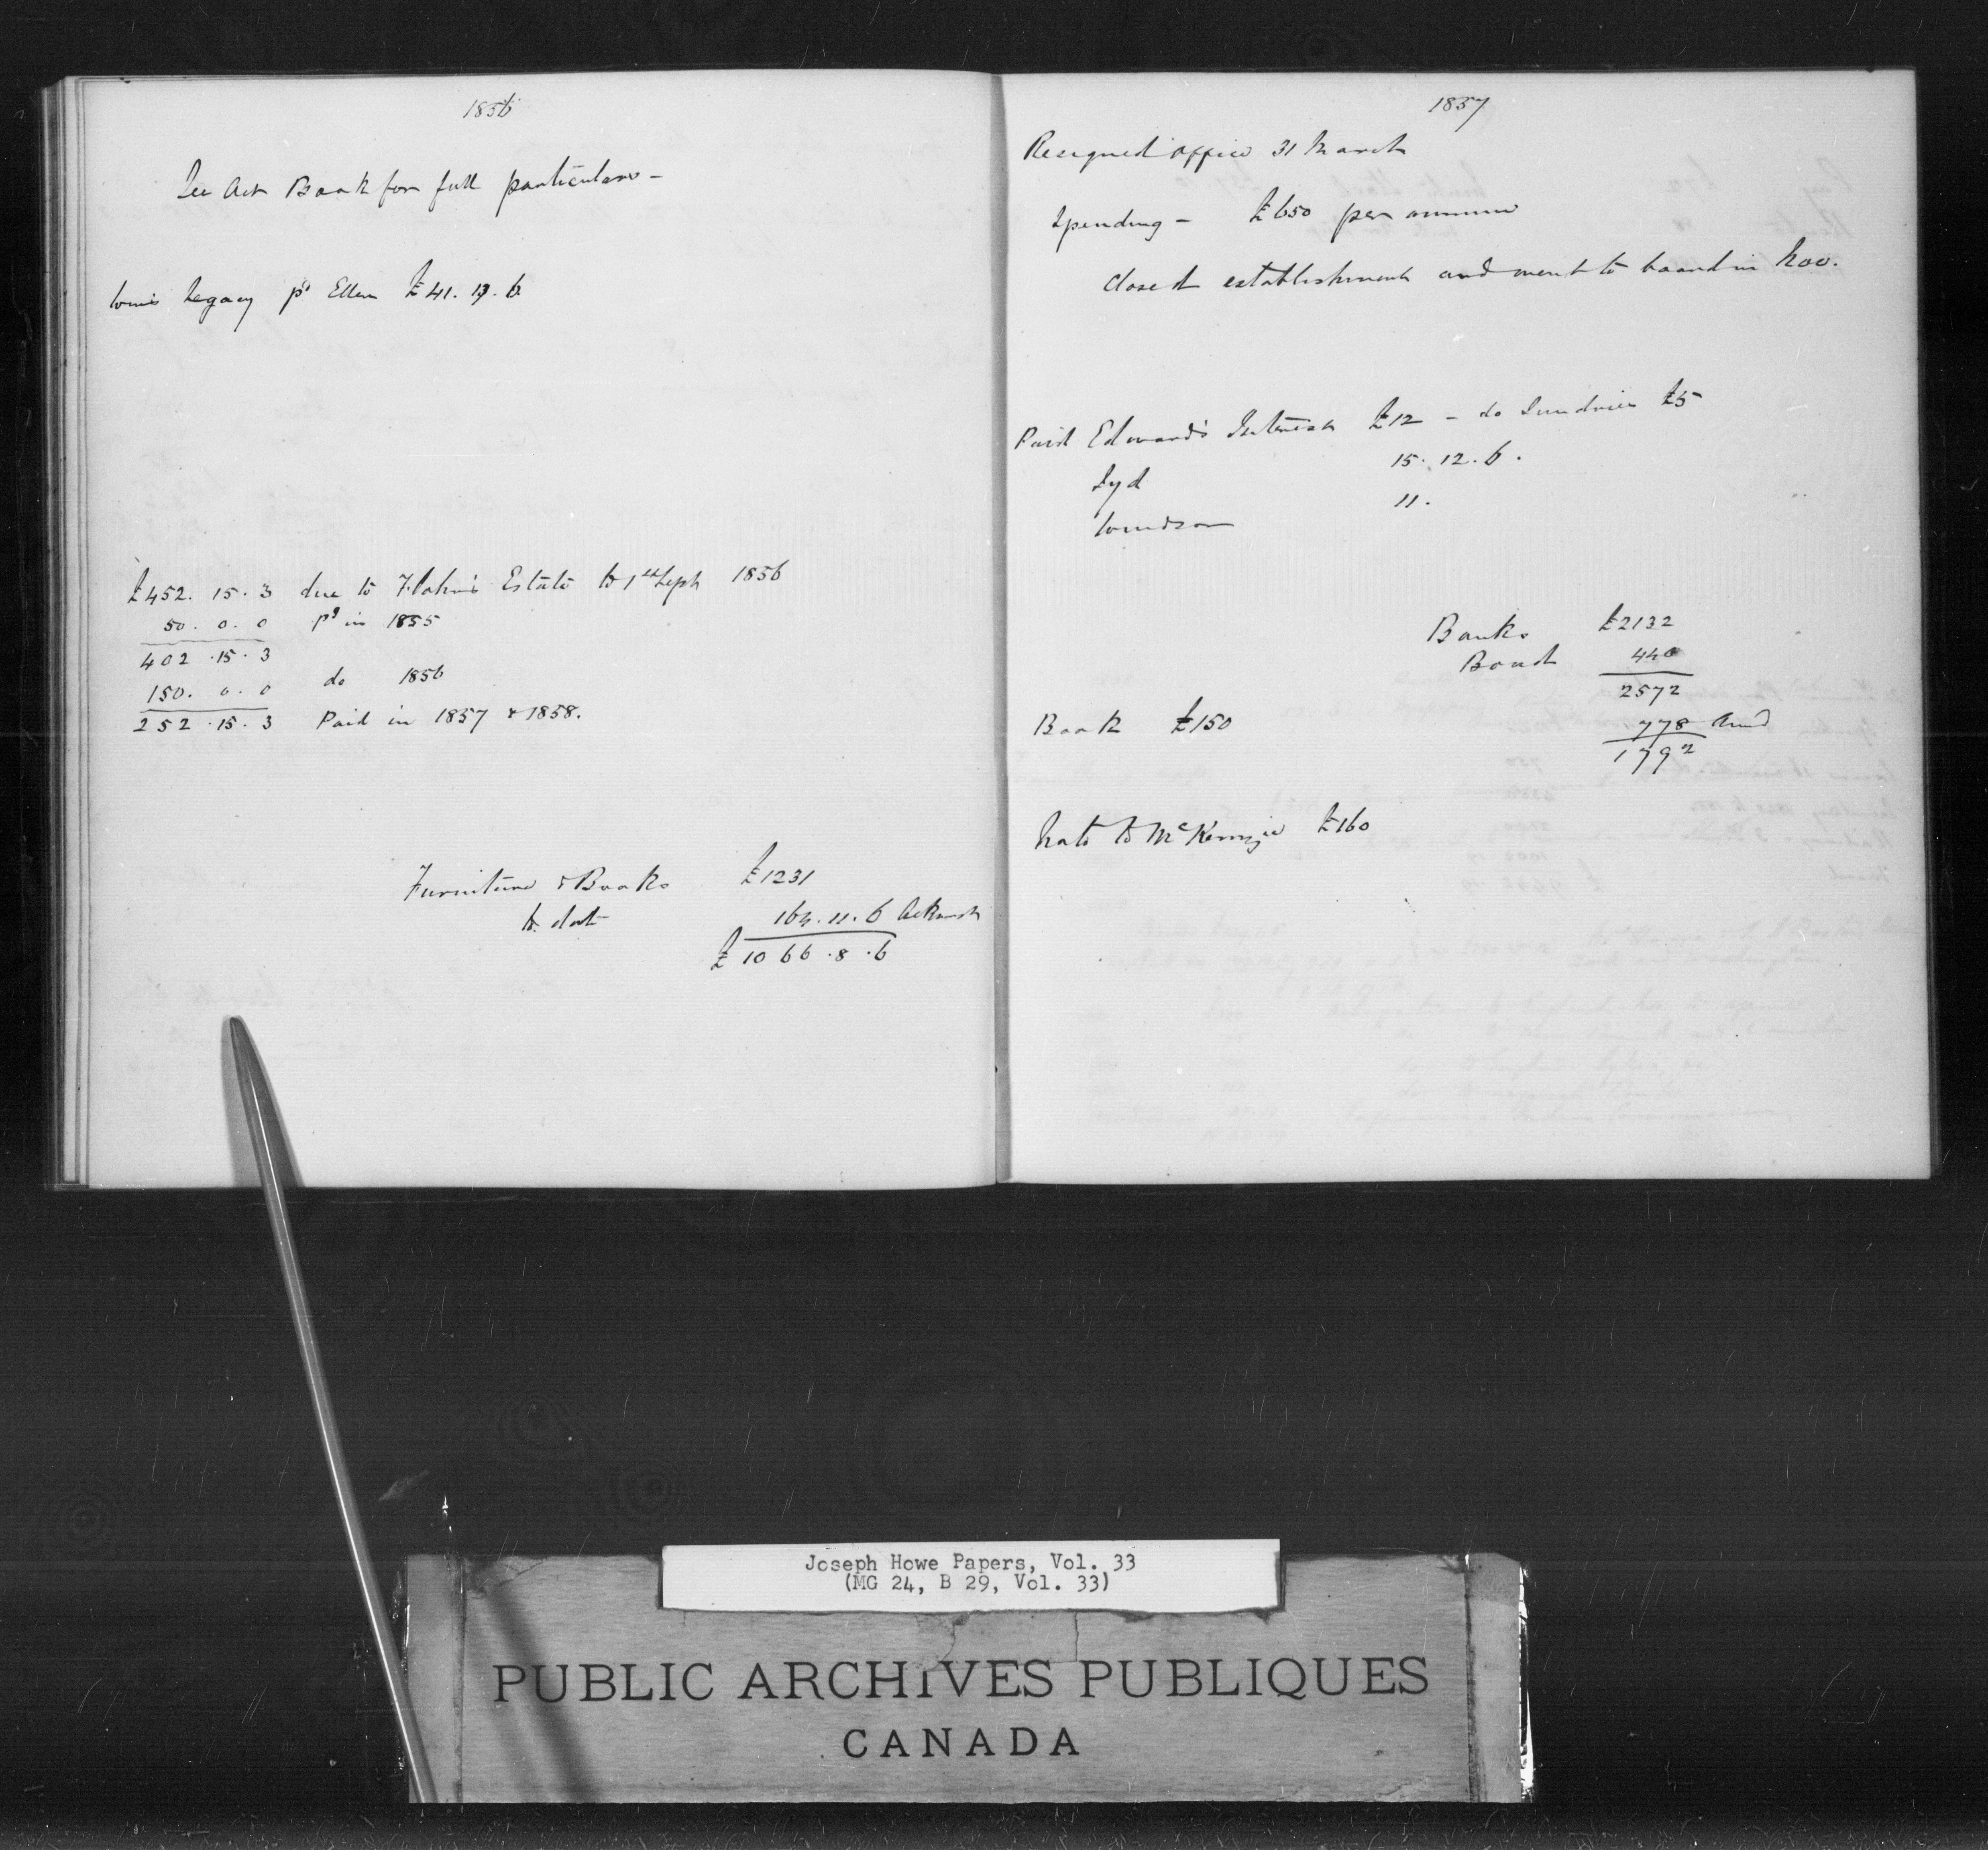 1856
See Act Book for full particulars -
Legacy pd Ellen £41. 13. 6.
£452. 15. 3 due to Estate to 1st Sept 1856
50. 0. 0 pd in 1855
402. 15. 3
150. 0. 0 do 1856
252. 15. 3 Paid in 1857 & 1858.
Furniture & Books £1231
to date 164. 11. 6
£1066. 8. 6
1857
Resigned office 31 March
Spending - £650 per annum
Closed establishment and went to board in Nov.
Paid Edward's Interest £12 - do Sundries £5
Syd 15. 12. 6.
Windsor 11.
Banks £2132
Bond 440
2572
Book £150
778
1792
Note to McKenzie £160
Joseph Howe Papers, Vol. 33
(MG 24, B 29, Vol. 33)
PUBLIC ARCHIVES PUBLIQUES
CANADA